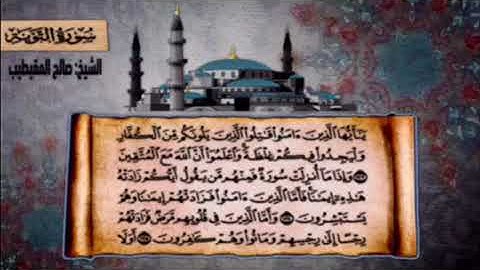 سورة التوبة
الشيخ: صالح المقيطيب
يَٰٓأَيُّهَا ٱلَّذِينَ ءَامَنُوا۟ قَٰتِلُوا۟ ٱلَّذِينَ يَلُونَكُم مِّنَ ٱلْكُفَّارِ
وَلْيَجِدُوا۟ فِيكُمْ غِلْظَةً وَٱعْلَمُوٓا۟ أَنَّ ٱللَّهَ مَعَ ٱلْمُتَّقِينَ
وَإِذَا مَآ أُنزِلَتْ سُورَةٌ فَمِنْهُم مَّن يَقُولُ أَيُّكُمْ زَادَتْهُ
هَٰذِهِۦٓ إِيمَٰنًا فَأَمَّا ٱلَّذِينَ ءَامَنُوا۟ فَزَادَتْهُمْ إِيمَٰنًا وَهُمْ
يَسْتَبْشِرُونَ وَأَمَّا ٱلَّذِينَ فِى قُلُوبِهِم مَّرَضٌ فَزَادَتْهُمْ
رِجْسًا إِلَىٰ رِجْسِهِمْ وَمَاتُوا۟ وَهُمْ كَٰفِرُونَ أَوَلَا